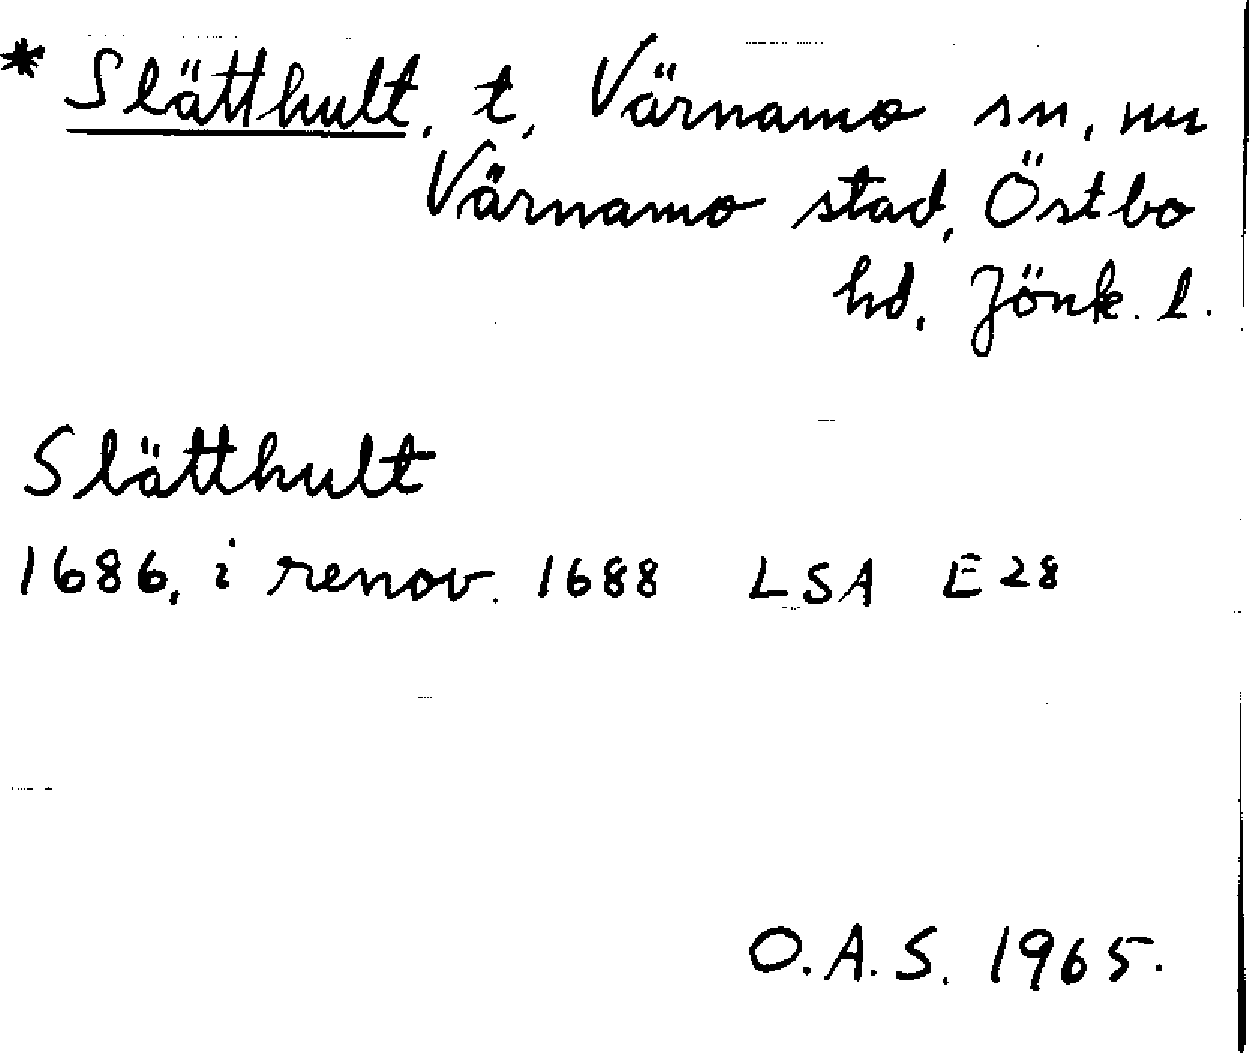 * Slätthult, t, Värnamo sn, nu
Värnamo stad, Östbo
hd, Jönk. l.
Slätthult
1686, i renov. 1688 LSA E28
O.A.S. 1965.